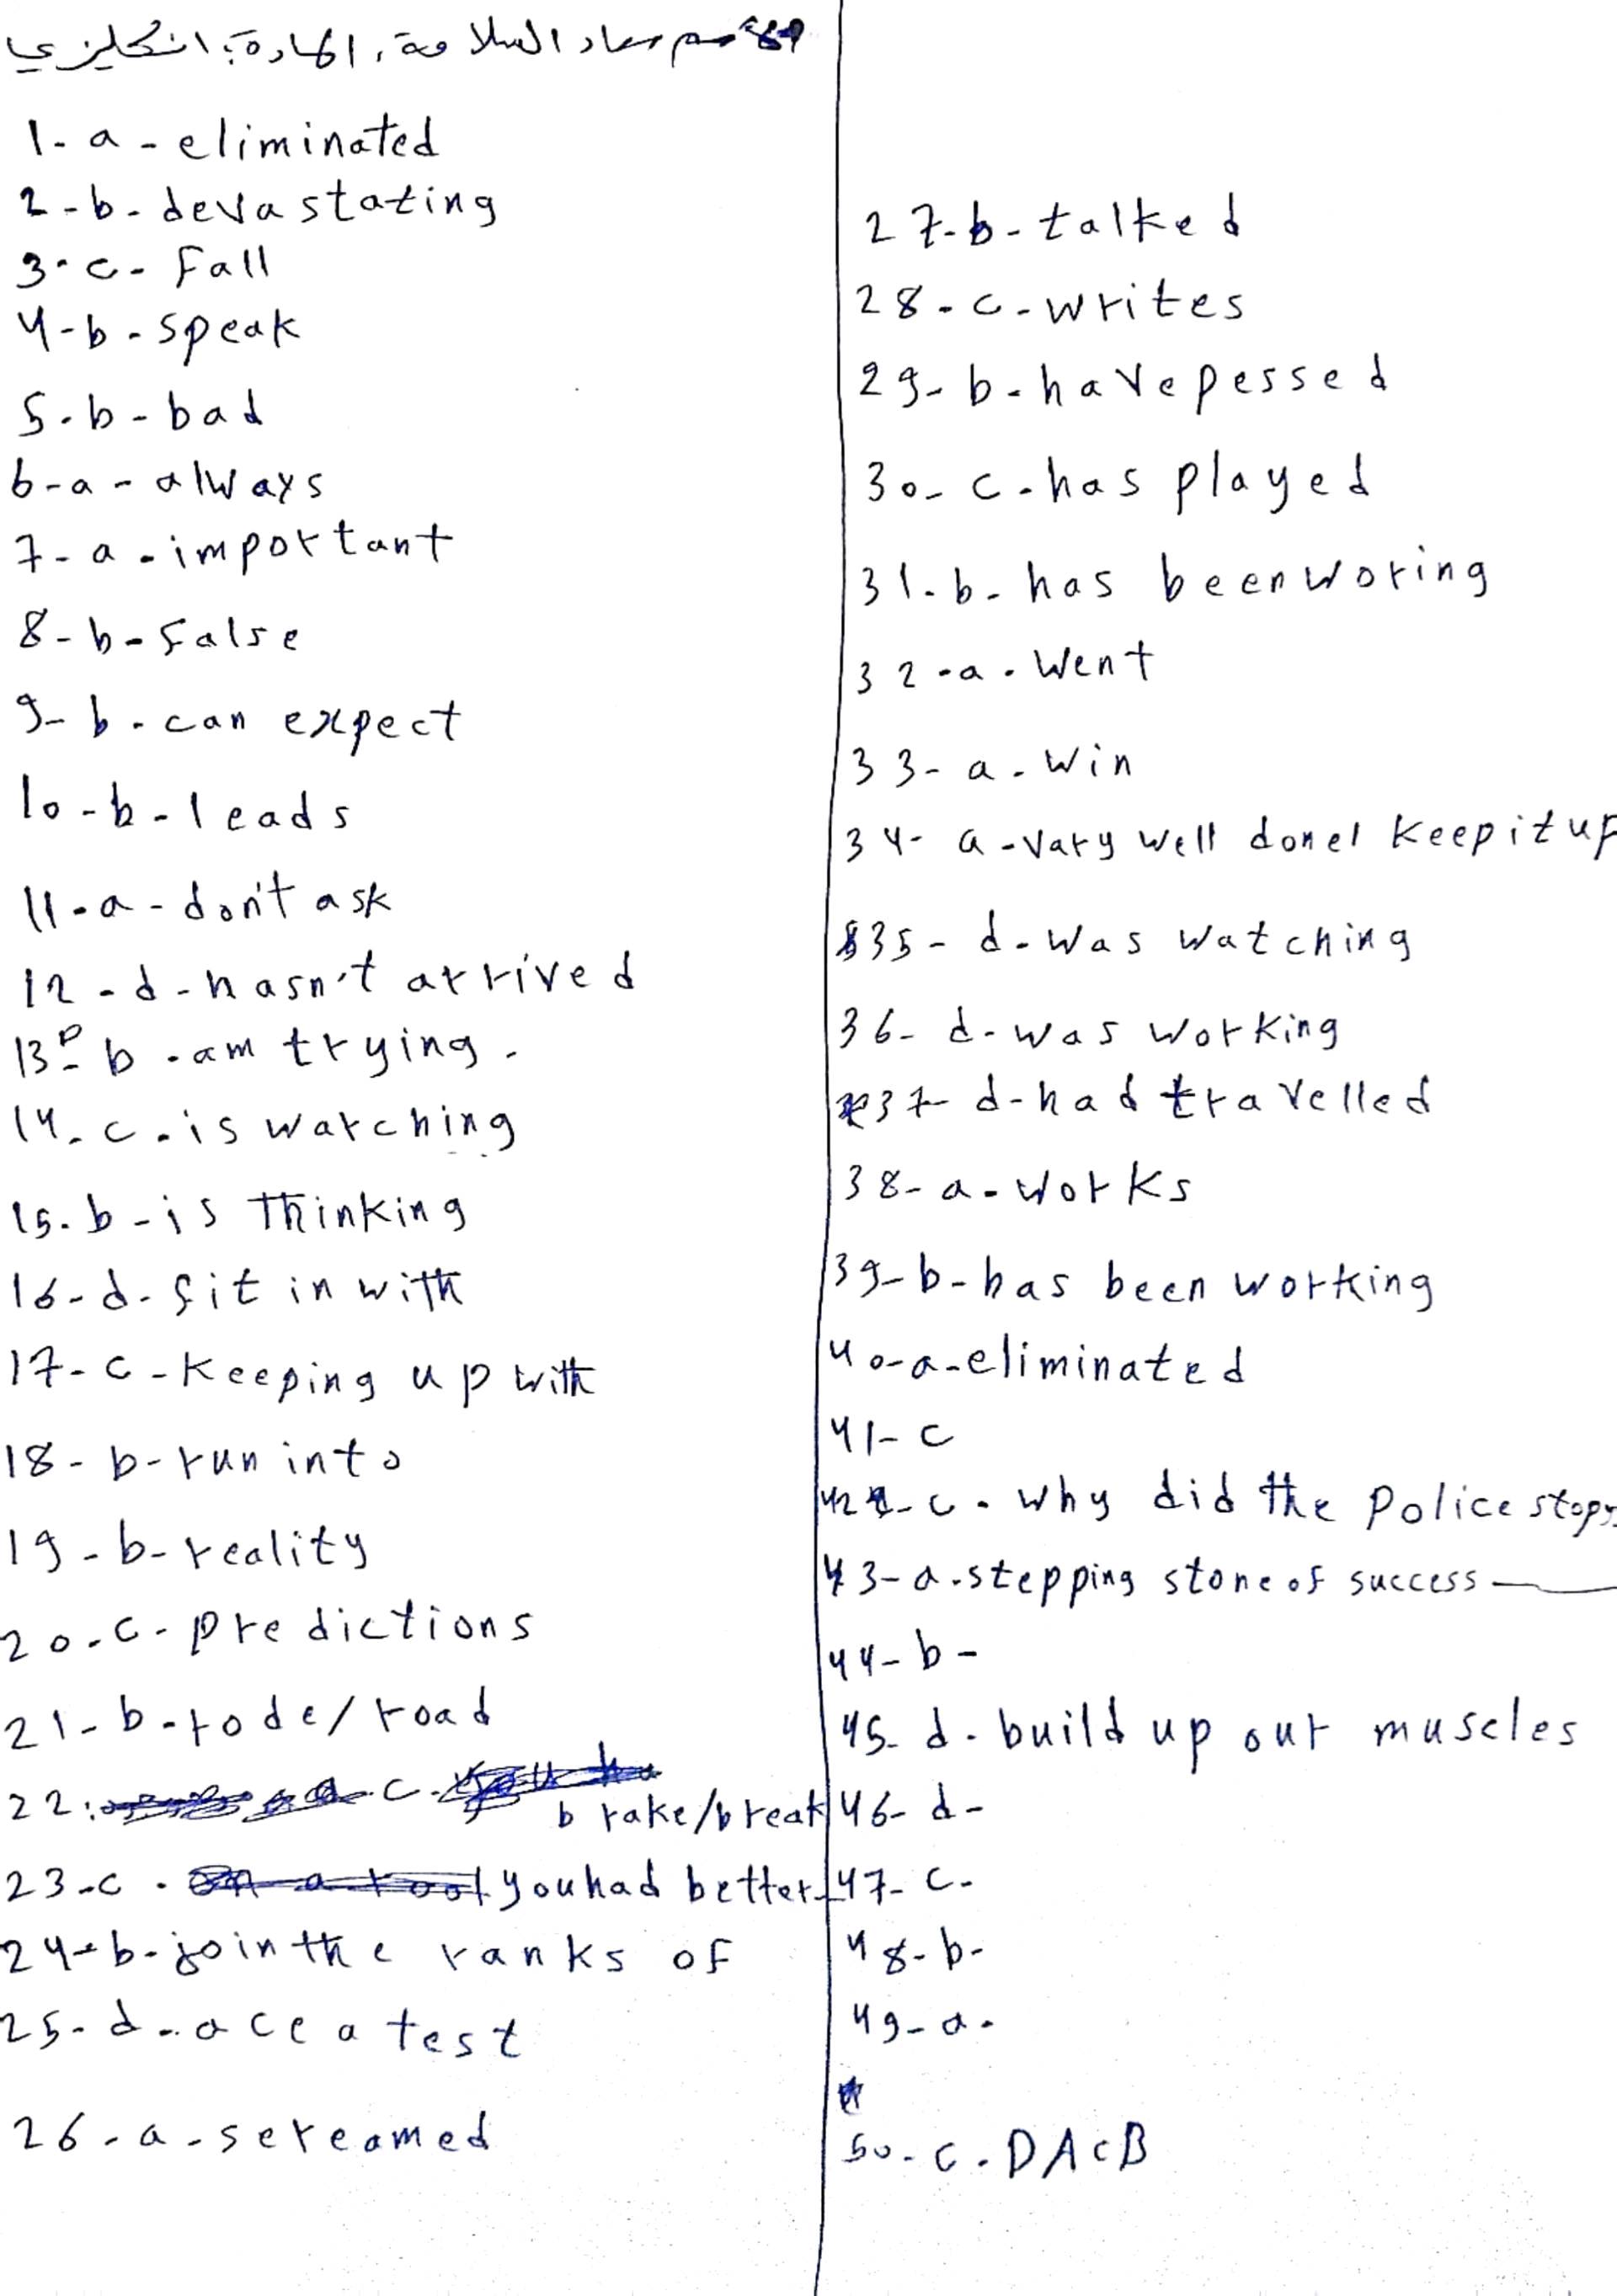 الاسم معاد السلامة، المادة: انكليزي
1- a - eliminated
2 - b - devastating
3 - c - Fall
4 - b - speak
5 - b - bad
6 - a - always
7 - a - important
8 - b - False
9 - b - can expect
10 - b - leads
11 - a - don't ask
12 - d - hasn't arrived
13 - b - am trying.
14 - c - is watching
15 - b - is Thinking
16 - d - fit in with
17 - c - Keeping up with
18 - b - run into
19 - b - reality
20 - c - predictions
21 - b - rode/road
22: c. brake/break
23 - c - you had better
24 - b - join the ranks of
25 - d - ace a test
26 - a - sereamed
27 - b - talked
28 - c - writes
29 - b - have pessed
30 - c - has played
31 - b - has been woring
32 - a - went
33 - a - win
34 - a - Vary well done! Keep it up
35 - d - was watching
36 - d - was working
37 - d - had travelled
38 - a - works
39 - b - has been working
40 - a - eliminated
41 - c
42 - c - why did the police stop
43 - a - stepping stone of success
44 - b -
45 - d - build up our muscles
46 - d -
47 - c -
48 - b -
49 - a -
50 - c - DACB